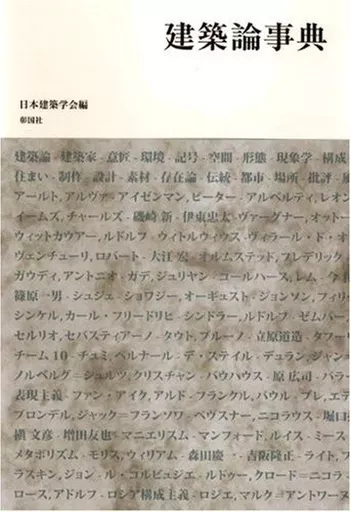 建築論事典
日本建築学会編
彰国社
建築論 - 建築家 - 意匠 - 環境 - 記号 - 空間 - 形態 - 現象学 - 構成
住まい - 制作 - 設計 - 素材 - 存在論 - 伝統 - 都市 - 場所 - 批評 - 風
アールト，アルヴァ - アイゼンマン，ピーター - アルベルティ，レオン
イームズ，チャールズ - 磯崎 新 - 伊東忠太 - ヴァーグナー，オットー
ウィットカウアー，ルドルフ - ウィトルウィウス - ヴィラール・ド・オ
ヴェンチューリ，ロバート - 大江 宏 - オルムステッド，フレデリック
ガウディ，アントニオ - ガデ，ジュリヤン - コールハース，レム - 今
篠原一男 - シュジェ - ショワジー，オーギュスト - ジョンソン，フィリ
シンケル，カール・フリードリヒ - シンドラー，ルドルフ - ゼムパー
セルリオ，セバスティアーノ - タウト，ブルーノ - 立原道造 - タフーリ
チーム 10 - チュミ，ベルナール - デ・ステイル - デュラン，ジャン
ノルベルグ＝シュルツ，クリスチャン - バウハウス - 原 広司 - パラー
表現主義 - ファン・アイク，アルド - フランクル，パウル - ブレ，エテ
ブロンデル，ジャック＝フランソワ - ペヴスナー，ニコラウス - 堀口
槇 文彦 - 増田友也 - マニエリスム - マンフォード，ルイス - ミース
メタボリズム - モリス，ウィリアム - 森田慶一 - 吉阪隆正 - ライト，フ
ラスキン，ジョン - ル・コルビュジエ - ルドゥー，クロード＝ニコラ
ロース，アドルフ - ロシア構成主義 - ロジエ，マルク＝アントワーヌ